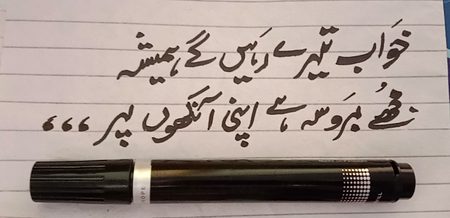 خَوَاب تیرے رہیں گے ہمیشہ
مُجھے بھروسہ ہے اپنی آنکھوں پر ،،،
HOPE